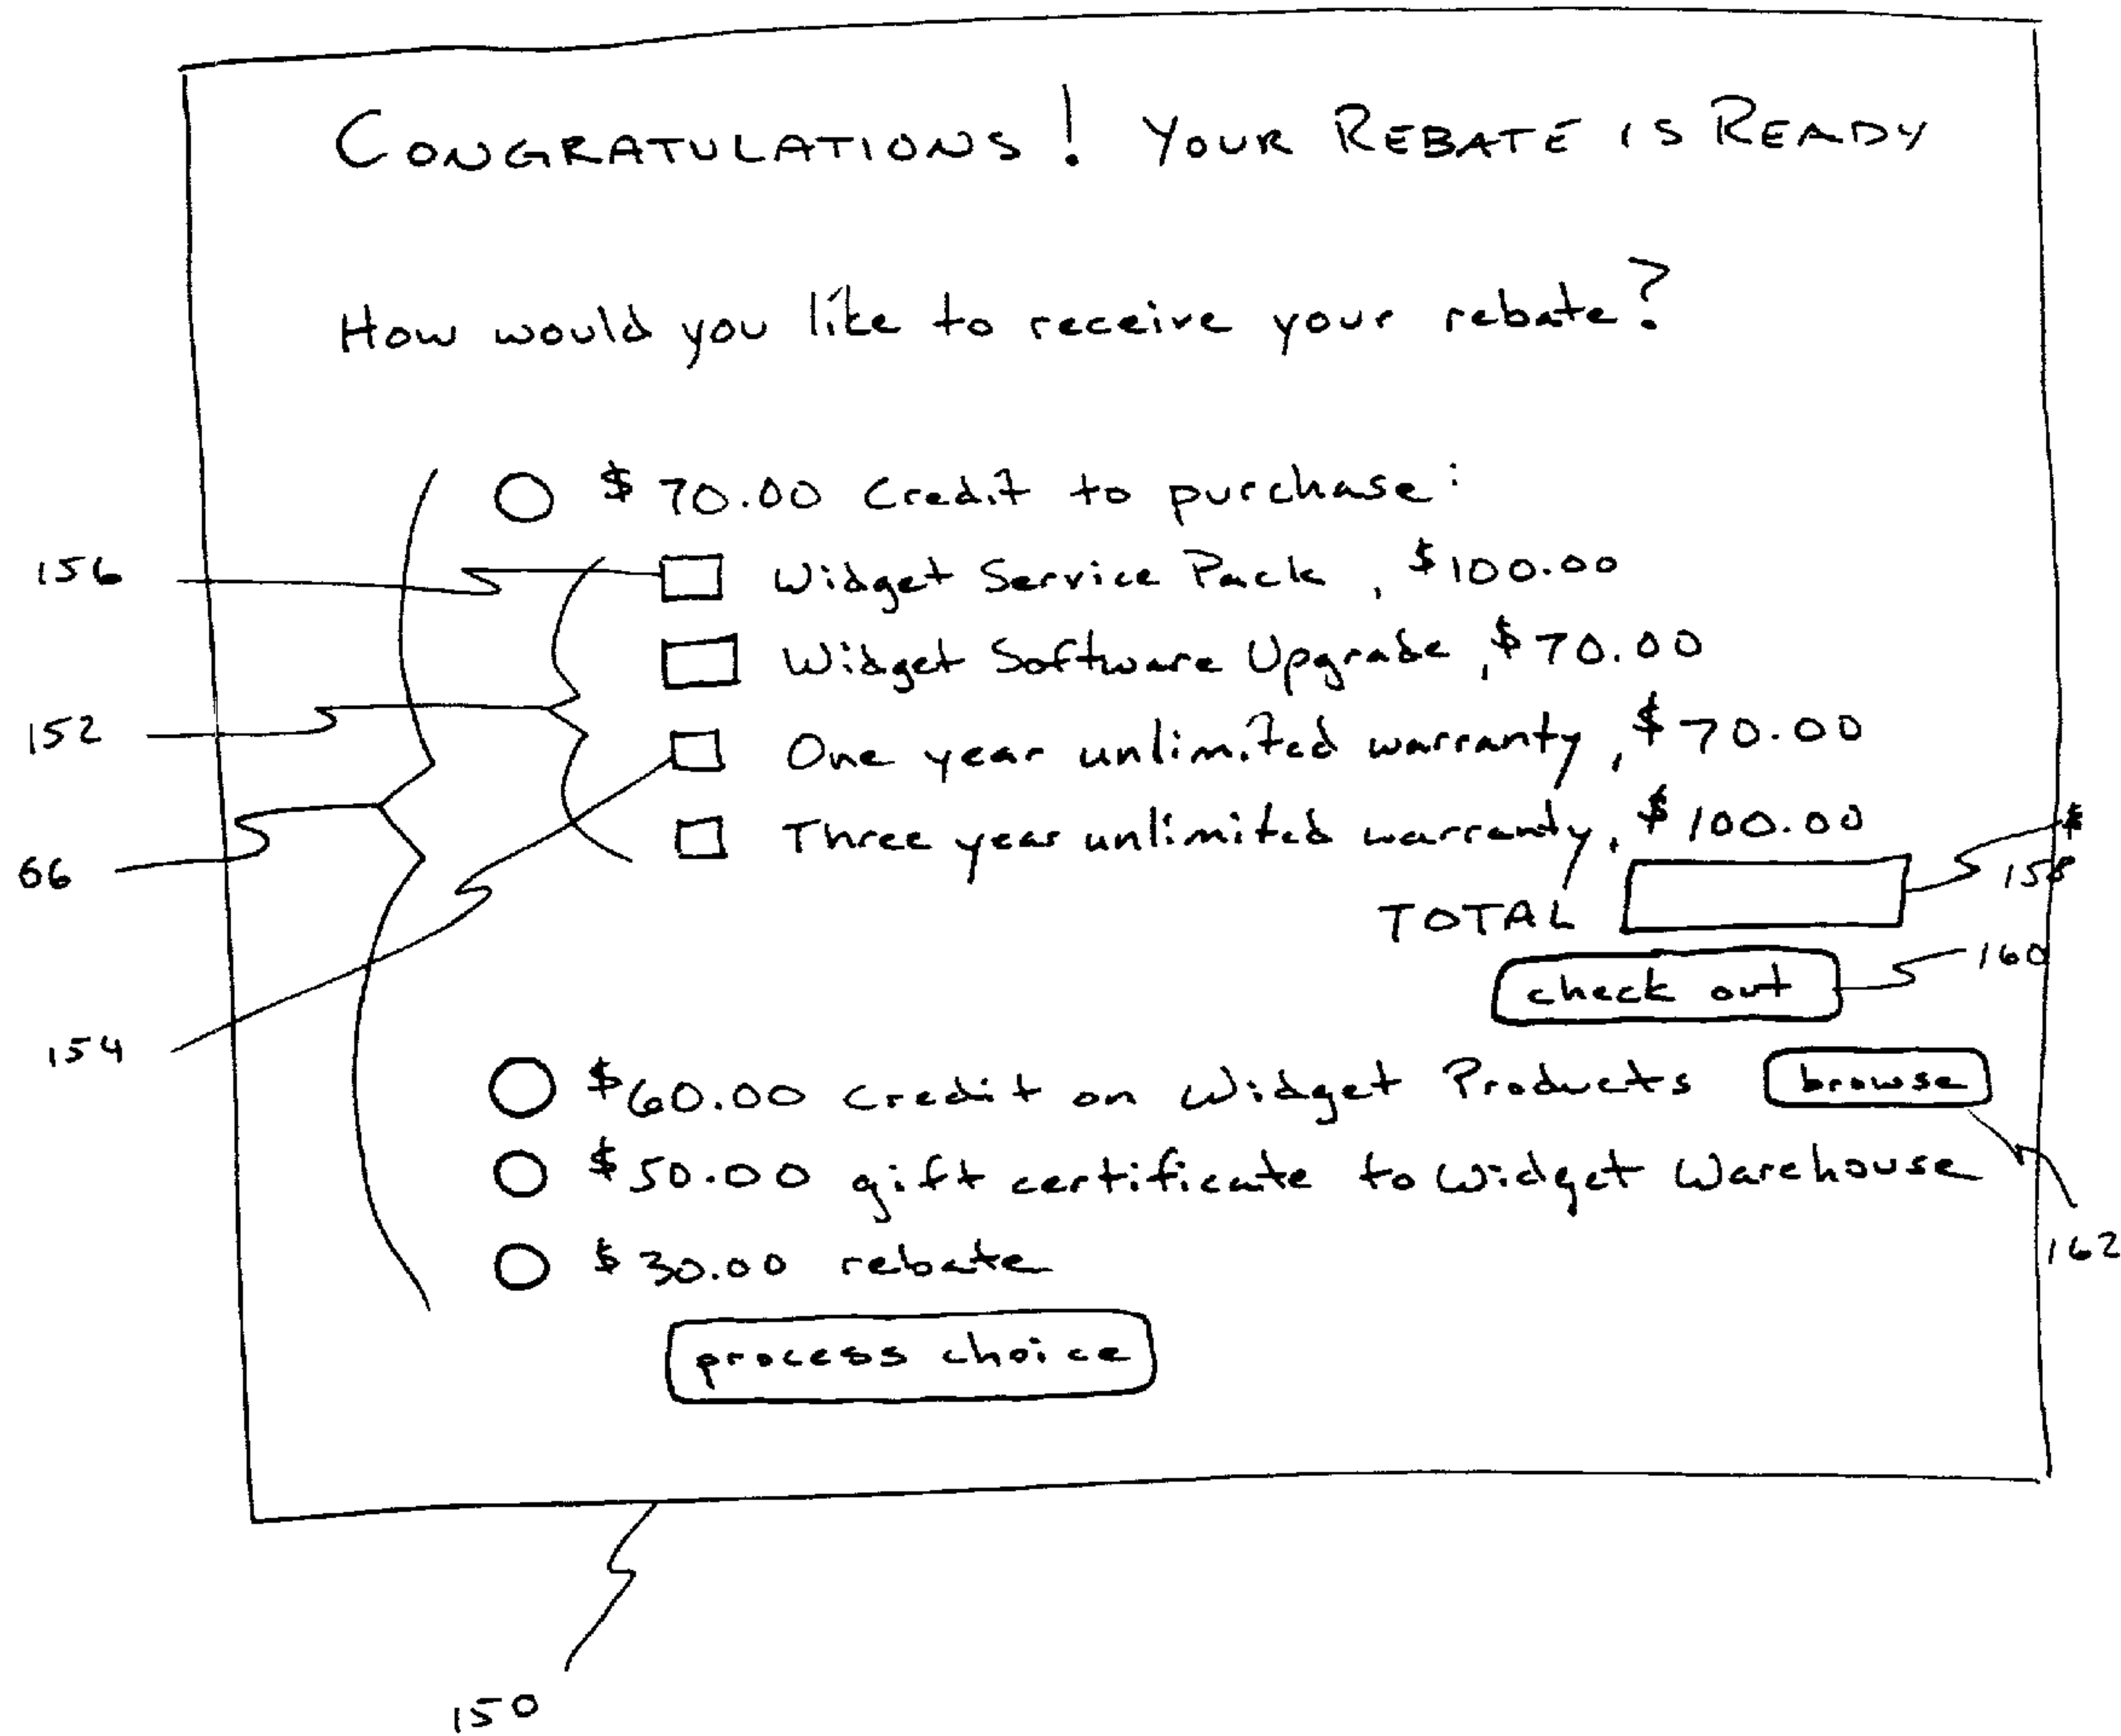 CONGRATULATIONS! YOUR REBATE IS READY
How would you like to receive your rebate?
$70.00 Credit to purchase:
156 Widget Service Pack, $100.00
Widget Software Upgrade, $70.00
152 One year unlimited warranty, $70.00
Three year unlimited warranty, $100.00
66
TOTAL 158
check out 160
154
$60.00 credit on Widget Products browse
$50.00 gift certificate to Widget Warehouse
$30.00 rebate 162
process choice
150